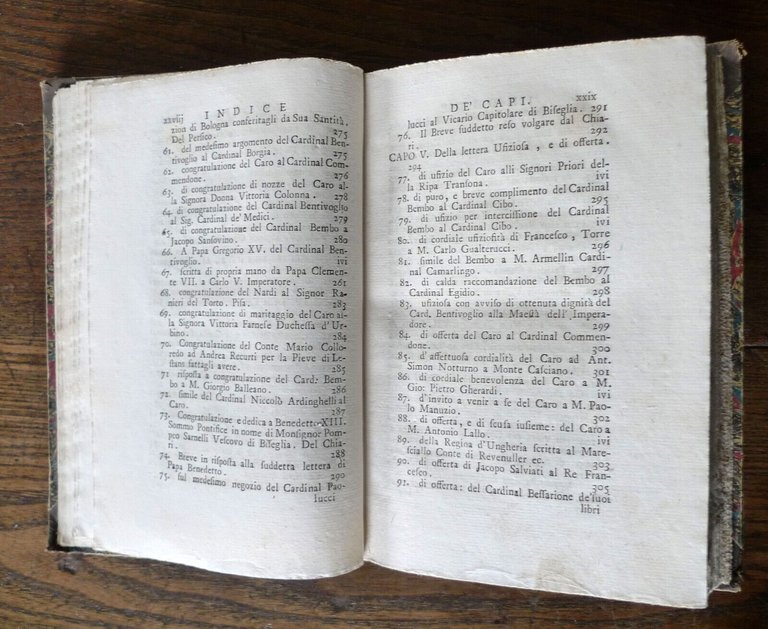 xxviij INDICE
zion di Bologna conferitagli da Sua Santità.
Del Persico. 275
61. del medesimo argomento del Cardinal Ben-
tivoglio al Cardinal Borgia. 275
62. congratulazione del Caro al Cardinal Com-
mendone. 276
63. di congratulazione di nozze del Caro al-
la Signora Donna Vittoria Colonna. 278
64. di congratulazione del Cardinal Bentivoglio
al Sig. Cardinal de' Medici. 279
65. di congratulazione del Cardinal Bembo a
Jacopo Sansovino. 280
66. A Papa Gregorio XV. del Cardinal Ben-
tivoglio. ivi
67. scritta di propria mano da Papa Clemen-
te VII. a Carlo V. Imperatore. 261
68. congratulazione del Nardi al Signor Ra-
nieri del Torto. Pisa. 283
69. congratulazione di maritaggio del Caro al-
la Signora Vittoria Farnese Duchessa d'Ur-
bino. 284
70. Congratulazione del Conte Mario Collo-
redo ad Andrea Recurti per la Pieve di Le-
stans fattagli avere. 285
71 risposta a congratulazione del Card: Bem-
bo a M. Giorgio Balleano. 286
72. simile del Cardinal Niccolò Ardinghelli al
Caro. 287
73. Congratulazione e dedica a Benedetto XIII.
Sommo Pontifice in nome di Monsignor Pom-
peo Sarnelli Vescovo di Biseglia. Del Chia-
ri. 288
74. Breve in risposta alla suddetta lettera di
Papa Benedetto. 290
75. sul medesimo negozio del Cardinal Pao-
lucci
DE' CAPI. xxix
lucci al Vicario Capitolare di Biseglia. 291
76. Il Breve suddetto reso volgare dal Chia-
ri. 292
CAPO V. Della lettera Ufiziosa, e di offerta.
294
77. di ufizio del Caro alli Signori Priori del-
la Ripa Transona. ivi
78. di puro, e breve complimento del Cardinal
Bembo al Cardinal Cibo. 295
79. di ufizio per intercessione del Cardinal
Bembo al Cardinal Cibo. ivi
80. di cordiale ufiziosità di Francesco, Torre
a M. Carlo Gualterucci. 296
81. simile del Bembo a M. Armellin Cardi-
nal Camarlingo. 297
82. di calda raccomandazione del Bembo al
Cardinal Egidio. 298
83. ufiziosa con avviso di ottenuta dignità del
Card. Bentivoglio alla Maestà dell'Impera-
dore. 299
84. di offerta del Caro al Cardinal Commen-
done. 300
85. d'affettuosa cordialità del Caro ad Ant.
Simon Notturno a Monte Casciano. 301
86. di cordiale benevolenza del Caro a M.
Gio: Pietro Gherardi. ivi
87. d'invito a venir a se del Caro a M. Pao-
lo Manuzio. ivi
88. di offerta, e di scusa insieme: del Caro a
M. Antonio Lallo. ivi
89. della Regina d'Ungheria scritta al Mare-
sciallo Conte di Revenuller ec. 303
90. di offerta di Jacopo Salviati al Re Fran-
cesco. 305
91. di offerta: del Cardinal Bessarione de'suoi
libri